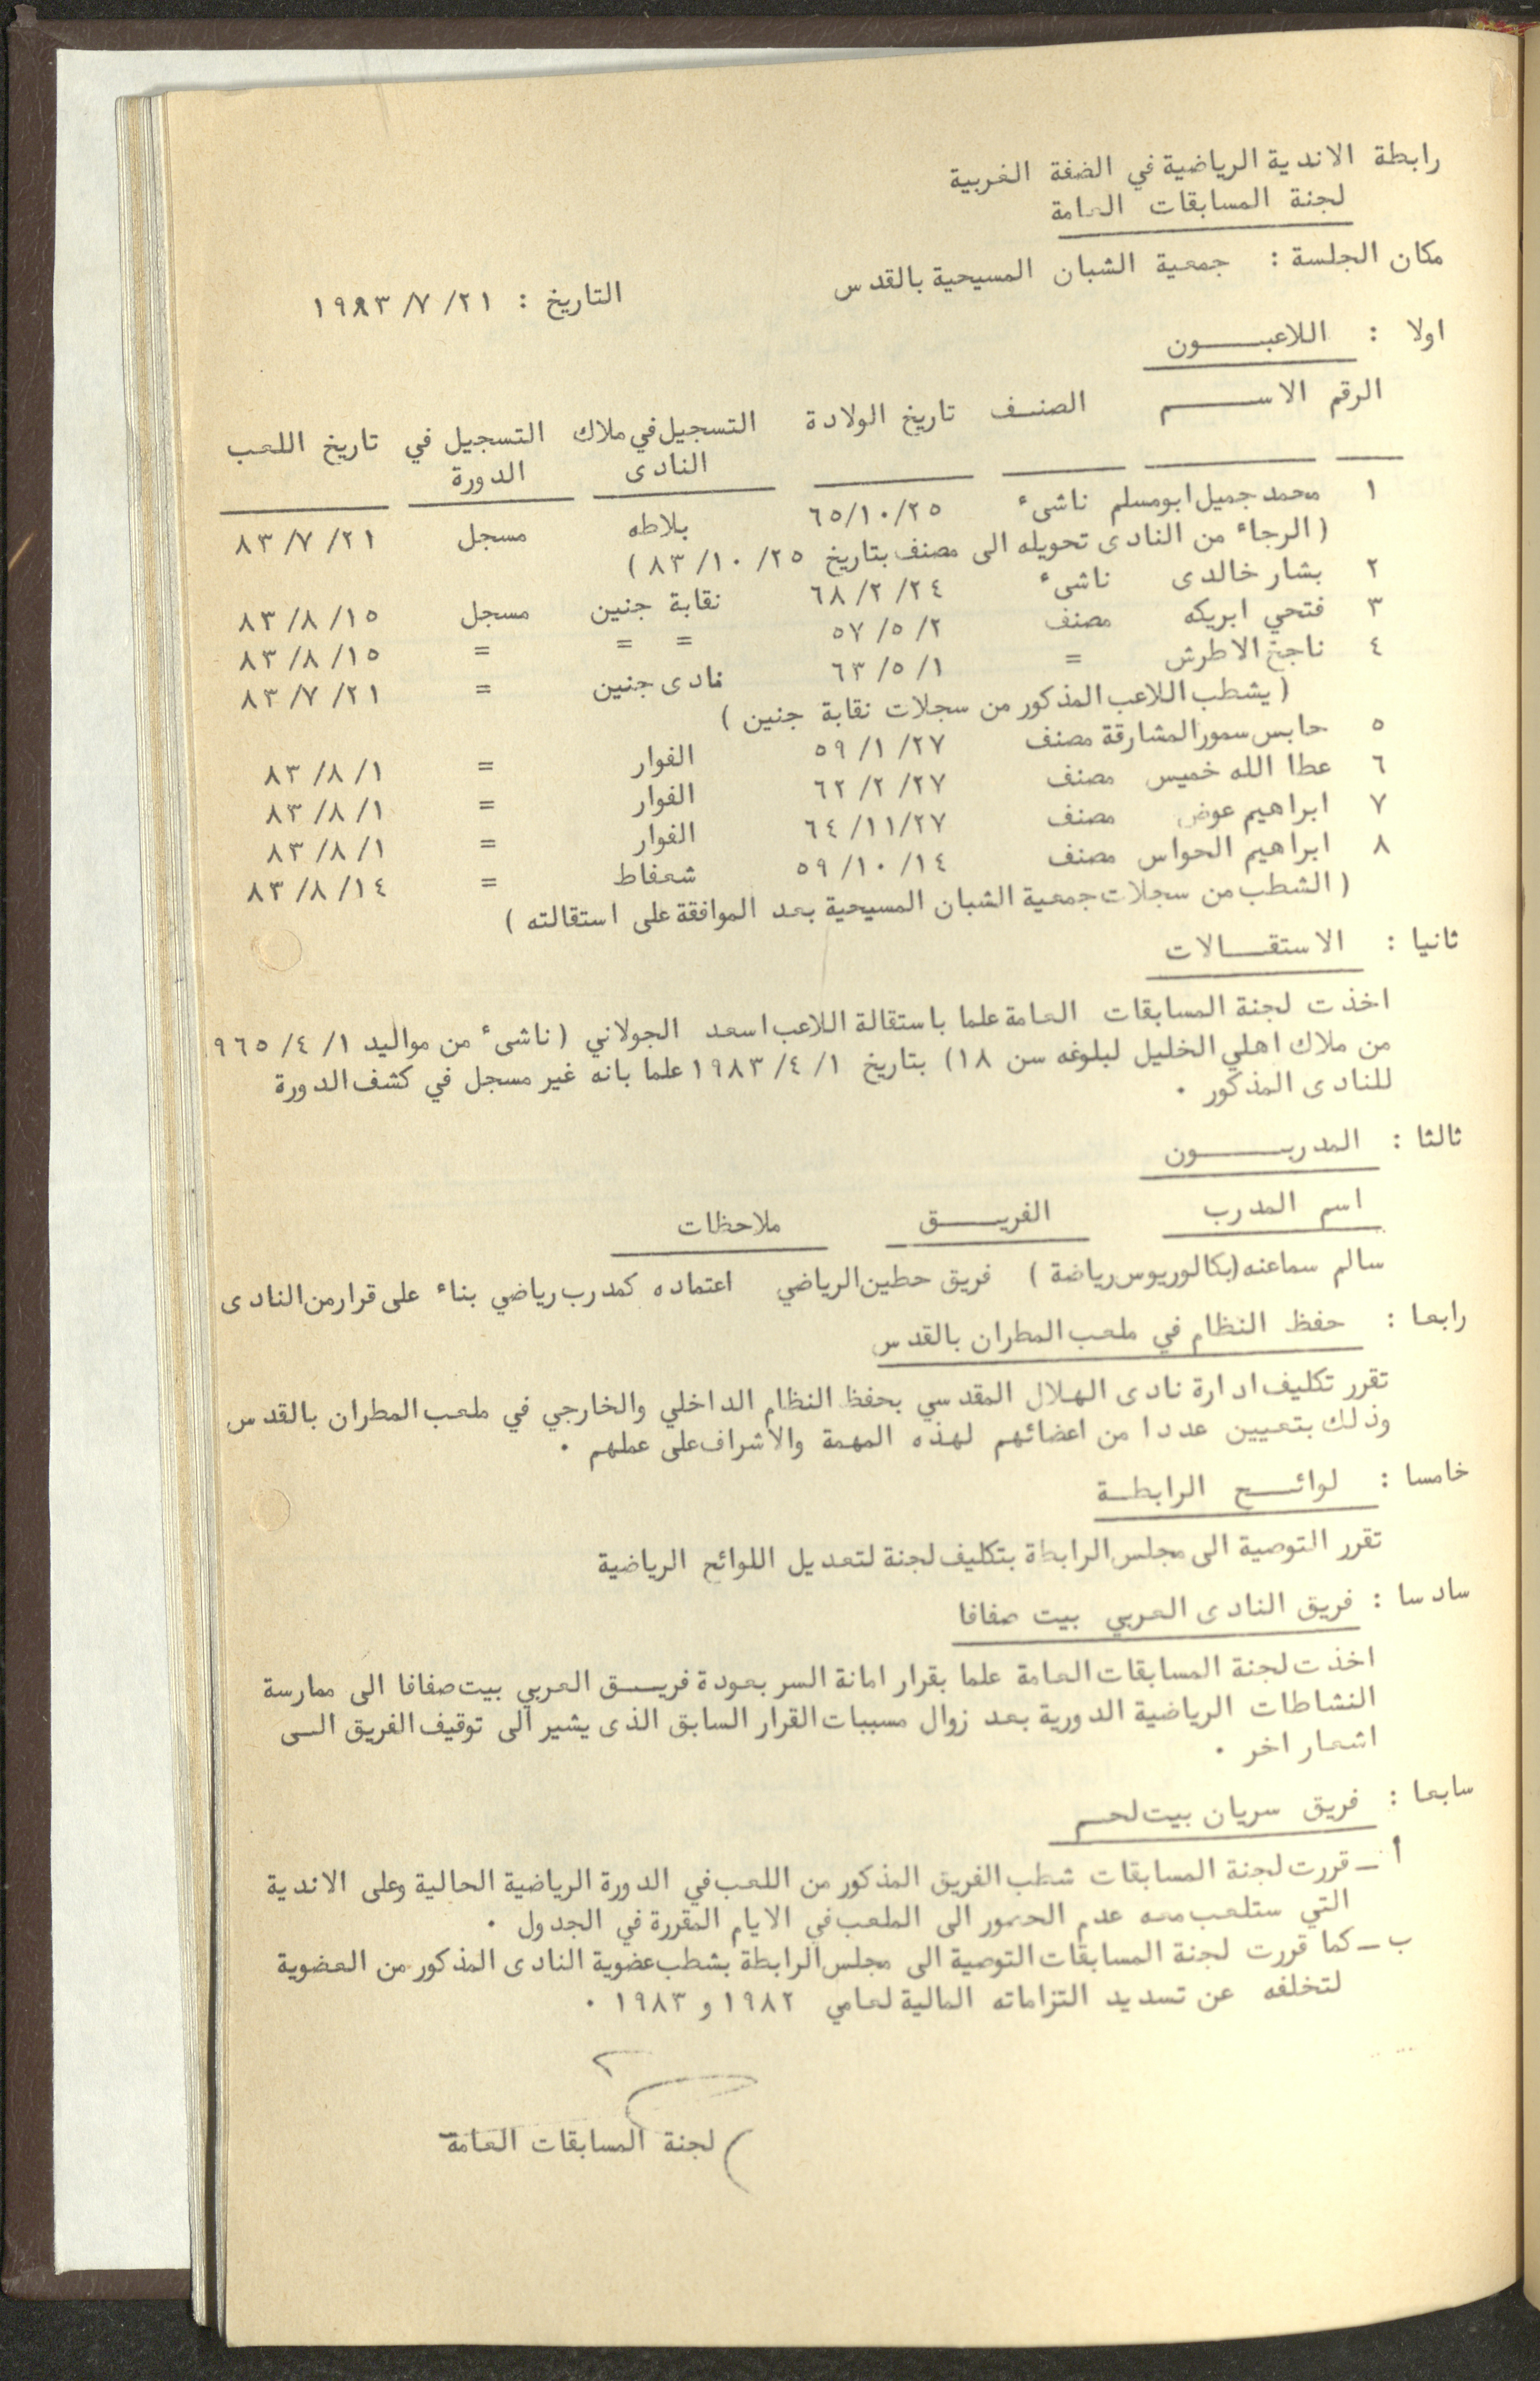 رابطة الاندية الرياضية في الضفة الغربية
لجنة المسابقات العامة
مكان الجلسة : جمعية الشبان المسيحية بالقدس
التاريخ : ٢١/ ٧/ ١٩٨٣
اولا : اللاعبـــــون
الرقم الاســــــم الصنف تاريخ الولادة التسجيل في ملاك النادى التسجيل في الدورة تاريخ اللعب
١ محمد جميل ابومسلم ناشىء ٢٥/ ١٠/ ٦٥ بلاطه مسجل ٢١/ ٧/ ٨٣
( الرجاء من النادى تحويله الى مصنف بتاريخ ٢٥/ ١٠/ ٨٣ )
٢ بشار خالدى ناشىء ٢٤/ ٢/ ٦٨ نقابة جنين مسجل ١٥/ ٨/ ٨٣
٣ فتحي ابريكه مصنف ٢/ ٥/ ٥٧ = = = ١٥/ ٨/ ٨٣
٤ ناجح الاطرش = ١/ ٥/ ٦٣ نادى جنين = ٢١/ ٧/ ٨٣
( يشطب اللاعب المذكور من سجلات نقابة جنين )
٥ حابس سمور المشارقة مصنف ٢٧/ ١/ ٥٩ الفوار = ١/ ٨/ ٨٣
٦ عطا الله خميس مصنف ٢٧/ ٢/ ٦٢ الفوار = ١/ ٨/ ٨٣
٧ ابراهيم عوض مصنف ٢٧/ ١١/ ٦٤ الفوار = ١/ ٨/ ٨٣
٨ ابراهيم الحواس مصنف ١٤/ ١٠/ ٥٩ شعفاط = ١٤/ ٨/ ٨٣
( الشطب من سجلات جمعية الشبان المسيحية بعد الموافقة على استقالته )
ثانيا : الاستقـــالات
اخذت لجنة المسابقات العامة علما باستقالة اللاعب اسعد الجولاني ( ناشىء من مواليد ١/ ٤/ ٩٦٥
من ملاك اهلي الخليل لبلوغه سن ١٨) بتاريخ ١/ ٤/ ١٩٨٣ علما بانه غير مسجل في كشف الدورة
للنادى المذكور .
ثالثا : المدربـــــون
اسم المدرب الفريـــــق ملاحظات
سالم سماعنه (بكالوريوس رياضة ) فريق حطين الرياضي اعتماده كمدرب رياضي بناء على قرار من النادى
رابعا : حفظ النظام في ملعب المطران بالقدس
تقرر تكليف ادارة نادى الهلال المقدسي بحفظ النظام الداخلي والخارجي في ملعب المطران بالقدس
وذلك بتعيين عددا من اعضائهم لهذه المهمة والاشراف على عملهم .
خامسا : لوائـــح الرابطـة
تقرر التوصية الى مجلس الرابطة بتكليف لجنة لتعديل اللوائح الرياضية
سادسا : فريق النادى العربي بيت صفافا
اخذت لجنة المسابقات العامة علما بقرار امانة السر بعودة فريـــق العربي بيت صفافا الى ممارسة
النشاطات الرياضية الدورية بعد زوال مسببات القرار السابق الذى يشير الى توقيف الفريق الـــى
اشعار اخر .
سابعا : فريق سريان بيت لحـم
أ ـ قررت لجنة المسابقات شطب الفريق المذكور من اللعب في الدورة الرياضية الحالية وعلى الاندية
التي ستلعب معه عدم الحضور الى الملعب في الايام المقررة في الجدول .
ب ـ كما قررت لجنة المسابقات التوصية الى مجلس الرابطة بشطب عضوية النادى المذكور من العضوية
لتخلفه عن تسديد التزاماته المالية لعامي ١٩٨٢ و ١٩٨٣ .
لجنة المسابقات العامة